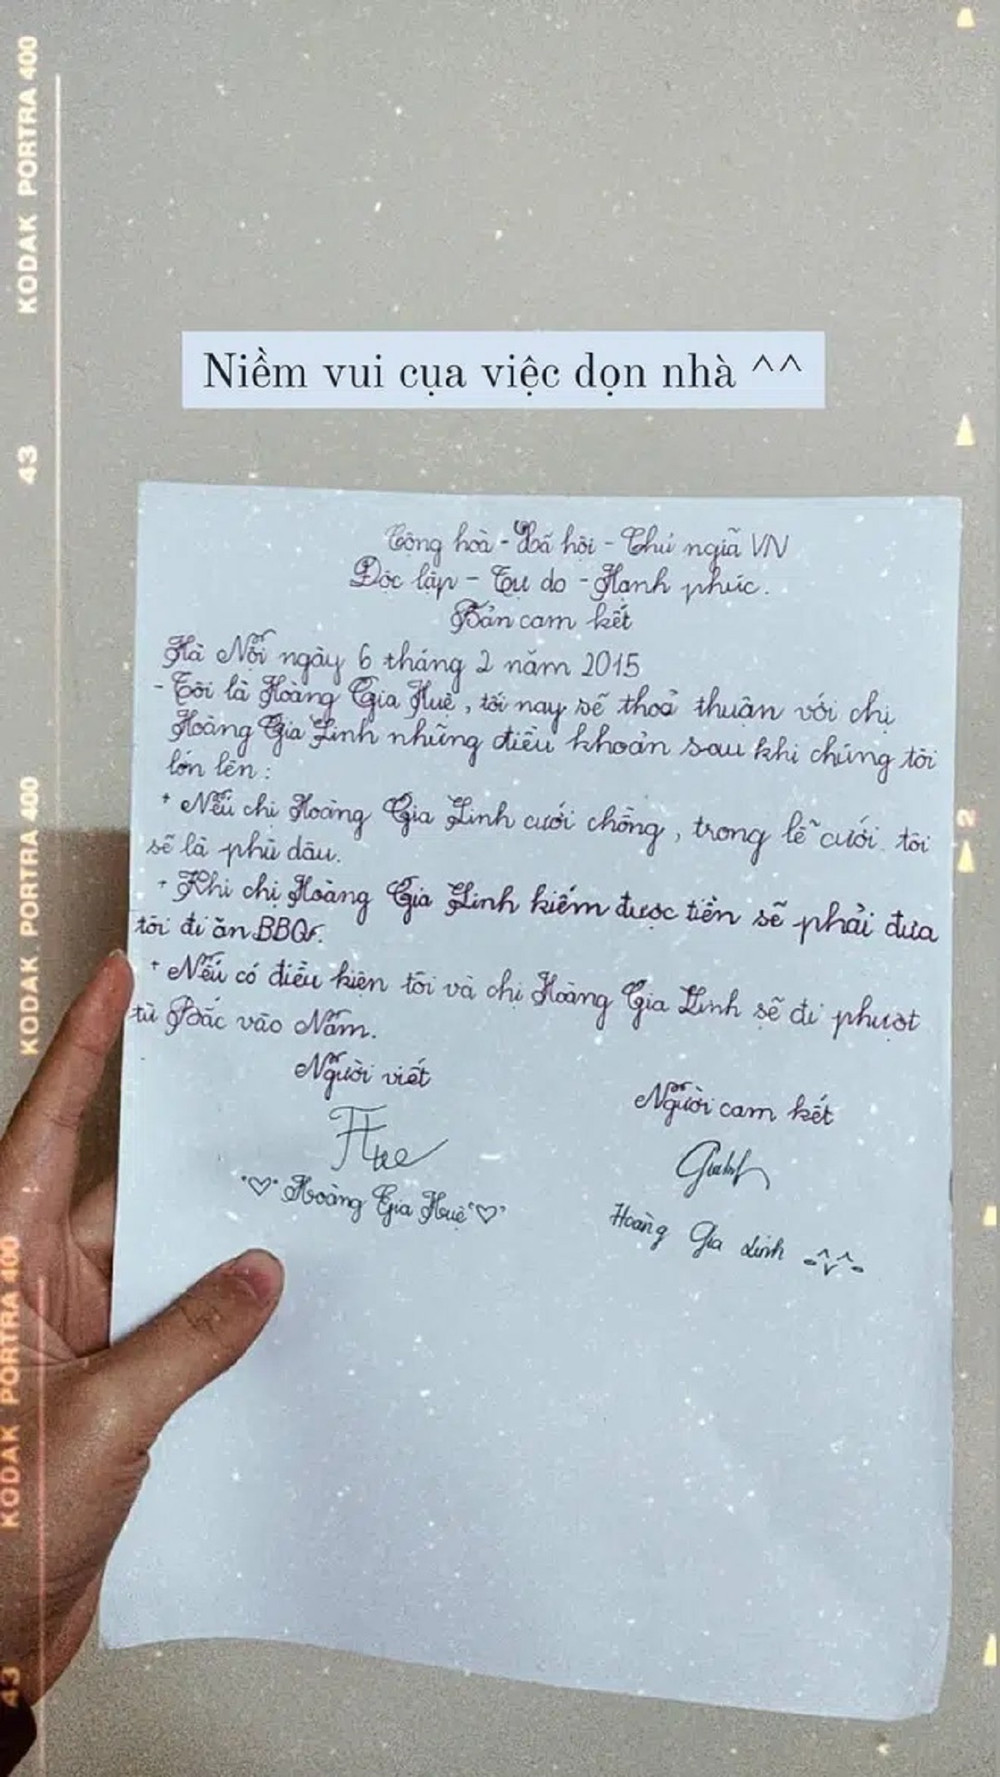 KODAK PORTRA 400
43
Niềm vui cụa việc dọn nhà ^^
Cộng hoà - Xã hội - Chủ ngiã VN
Độc lập - Tự do - Hạnh phúc.
Bản cam kết
Hà Nỗi ngày 6 tháng 2 năm 2015
- Tôi là Hoàng Gia Huệ, tối nay sẽ thoả thuận với chị
Hoàng Gia Linh những điều khoản sau khi chúng tôi
lớn lên:
+ Nếu chị Hoàng Gia Linh cưới chồng, trong lễ cưới tôi
sẽ là phù dâu.
+ Khi chị Hoàng Gia Linh kiếm được tiền sẽ phải đưa
tôi đi ăn BBQ.
+ Nếu có điều kiện tôi và chị Hoàng Gia Linh sẽ đi phượt
từ Bắc vào Nam.
Người viết
Người cam kết
Hue
Hoàng Gia Huệ
Hoàng Gia Linh
KODAK PORTRA 400
2
KODAK PORTRA 400
43